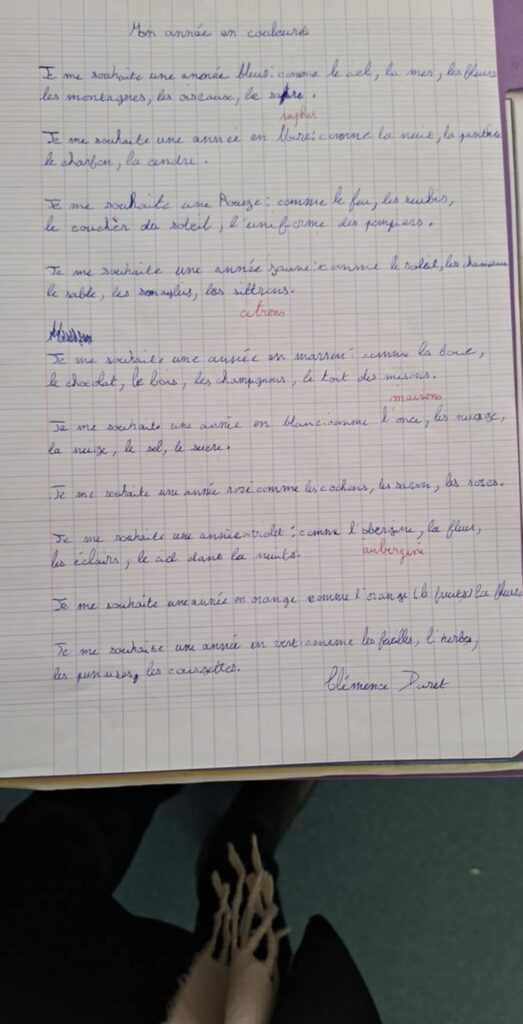 Mon année en couleurs
Je me souhaite une année bleue : comme le ciel, la mer, les fleurs
les montagnes, les oiseaux, le
saphir
Je me souhaite une année en Noire : comme la nuit, la panthère
le charbon, la cendre.
Je me souhaite une Rouge : comme le feu, les rubis,
le coucher du soleil, l'uniforme des pompiers.
Je me souhaite une année jaune : comme le soleil, les
le sable, les les sittrons.
citrons
Je me souhaite une année en marron : comme la boue,
le chocolat, le bois, les champignons, le toit des misons.
maisons
Je me souhaite une année en blanc : comme l'once, les nuage,
la neige, le sel, le sucre.
Je me souhaite une année rose comme les cochons, les savon, les roses.
Je me souhaite une année violet : comme l'obergine, la fleur,
les éclairs, le ciel dans la nuits.
aubergine
Je me souhaite une année en orange comme l'orange (le fruits) la fleur
Je me souhaite une année en vert : comme les feuilles, l'herbe,
les punaises, les
Clémence Duret